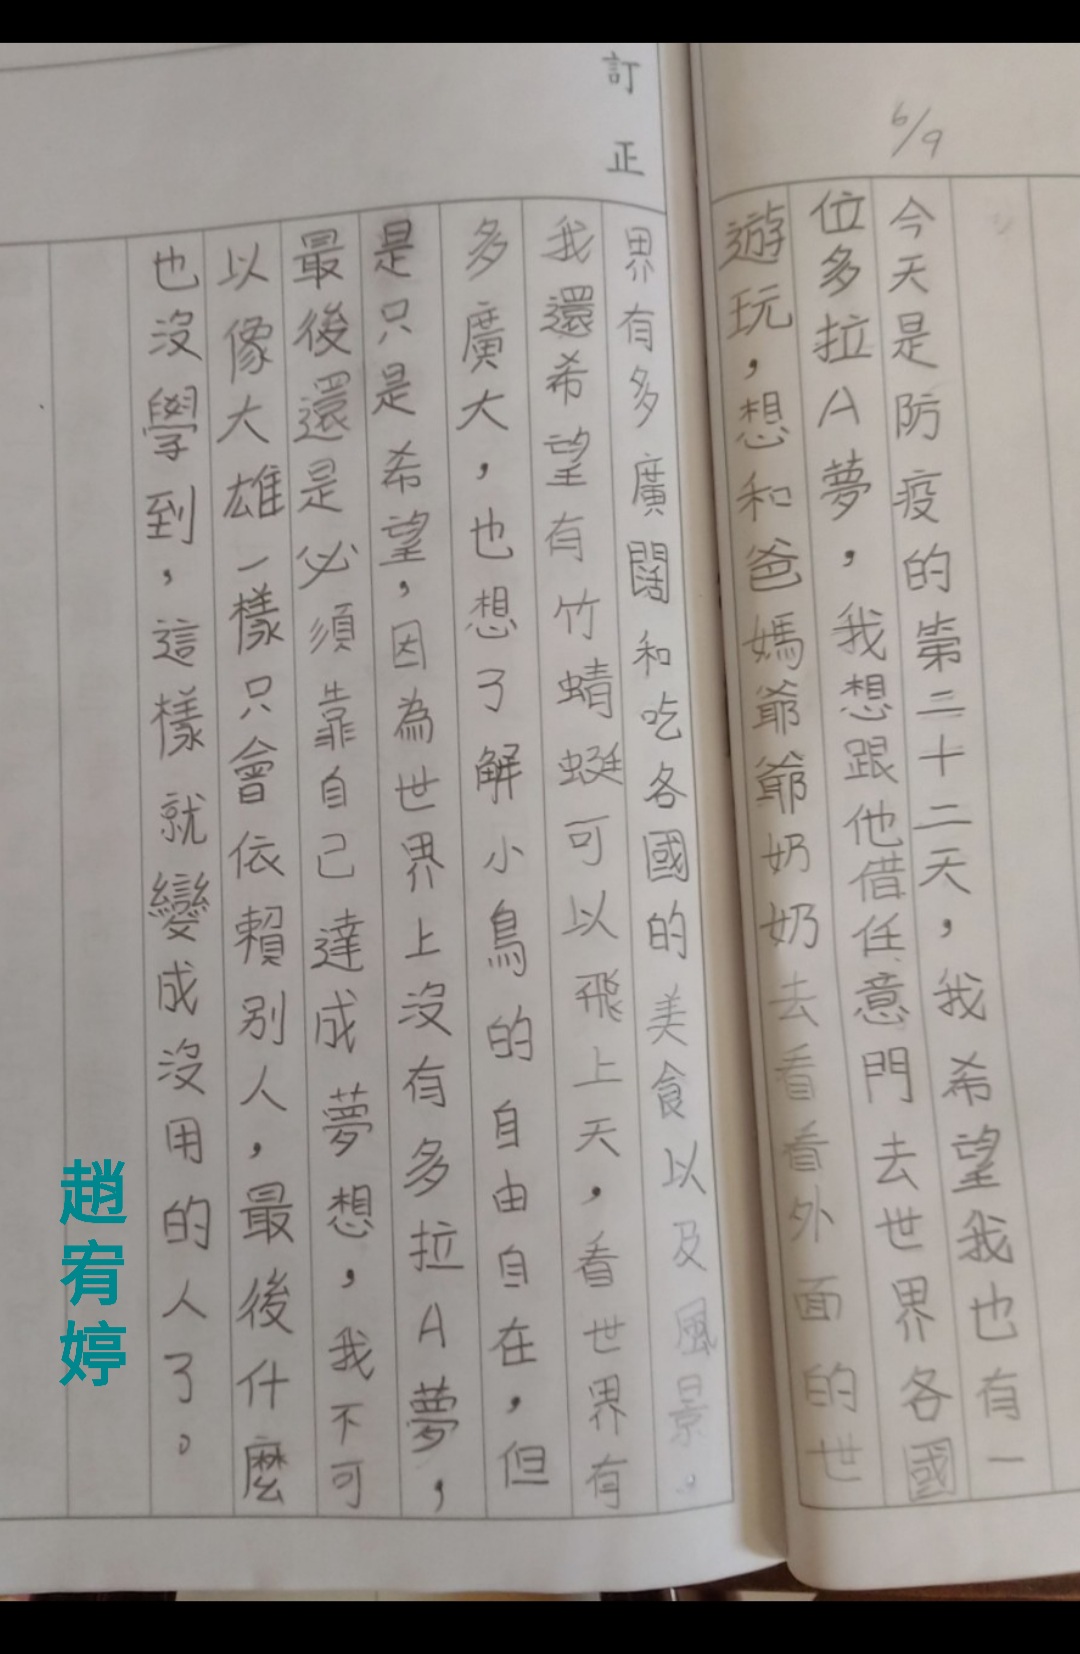 6/9
今天是防疫的第二十二天，我希望我也有一
位多拉A夢，我想跟他借任意門去世界各國
遊玩，想和爸媽爺爺奶奶去看看外面的世
訂正
界有多廣闊和吃各國的美食以及風景。
我還希望有竹蜻蜓可以飛上天，看世界有
多廣大，也想了解小鳥的自由自在，但
是只是希望，因為世界上沒有多拉A夢，
最後還是必須靠自己達成夢想，我不可
以像大雄一樣只會依賴別人，最後什麼
也沒學到，這樣就變成沒用的人了。
趙宥婷